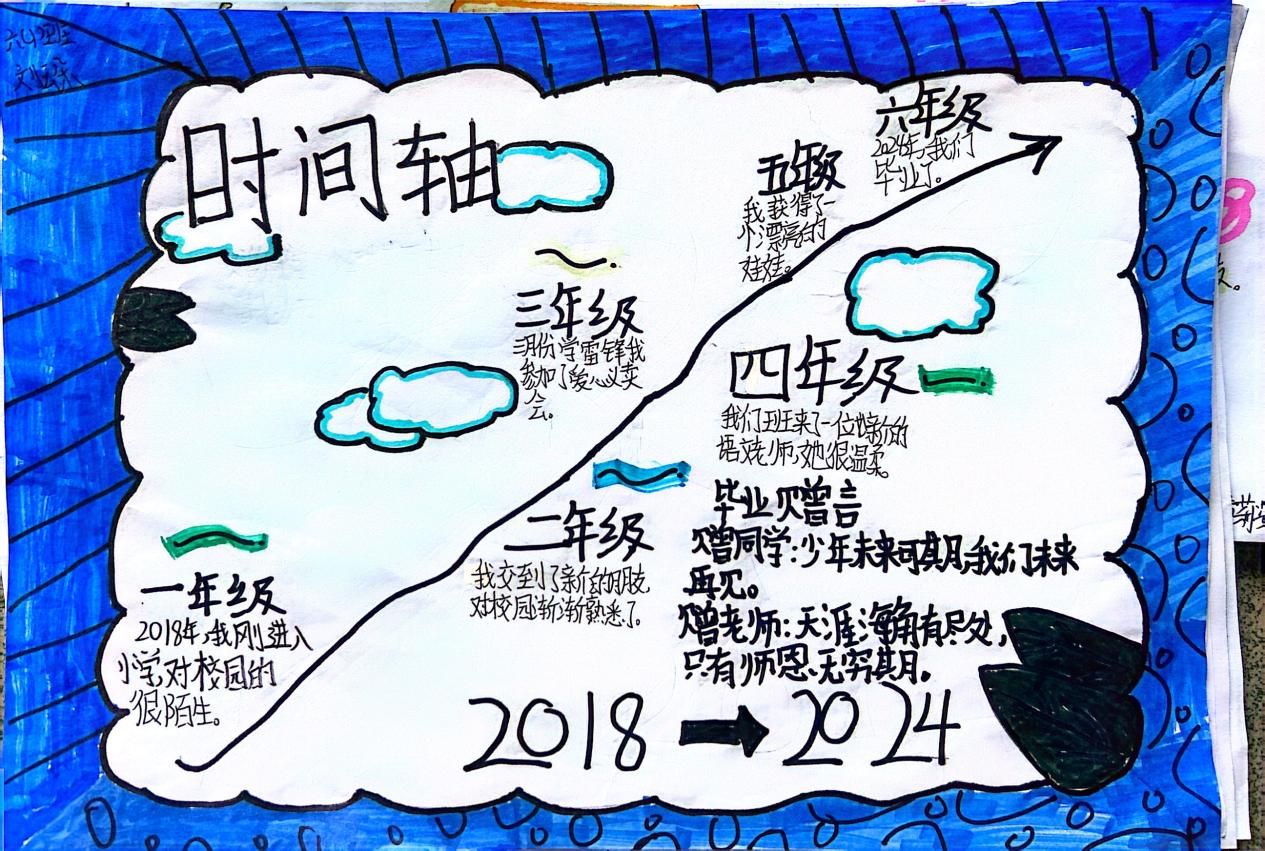 时间轴
六年级
2024年,我们
毕业了。
五年级
我获得了一
个漂亮的
娃娃。
三年级
三月份学雷锋我
参加了爱心义卖
会。
四年级
我们班来了一位新的
语文老师,她很温柔。
二年级
我交到了新的朋友
对校园渐渐熟悉了。
一年级
2018年,我刚进入
小学,对校园的
很陌生。
毕业赠言
赠同学:少年未来可期,我们未来
再见。
赠老师:天涯海角有尽处,
只有师恩无穷期。
2018 → 2024